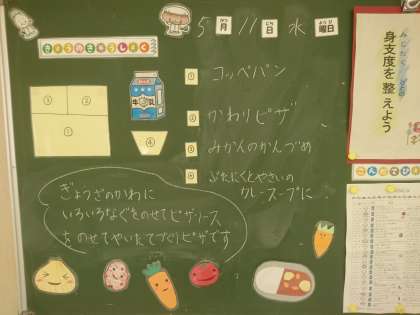 5月11日 水曜日
がつ にち ようび
きょうのきゅうしょく
牛乳
① コッペパン
② かわりピザ
③ みかんのかんづめ
④ ぶたにくとやさいの
カレースープに
② ③
①
④
ぎょうざのかわに
いろいろなぐをのせてピザソース
をのせてやいたてづくりピザです
身支度を整えよう
みじたく ととの
こんだてひょう